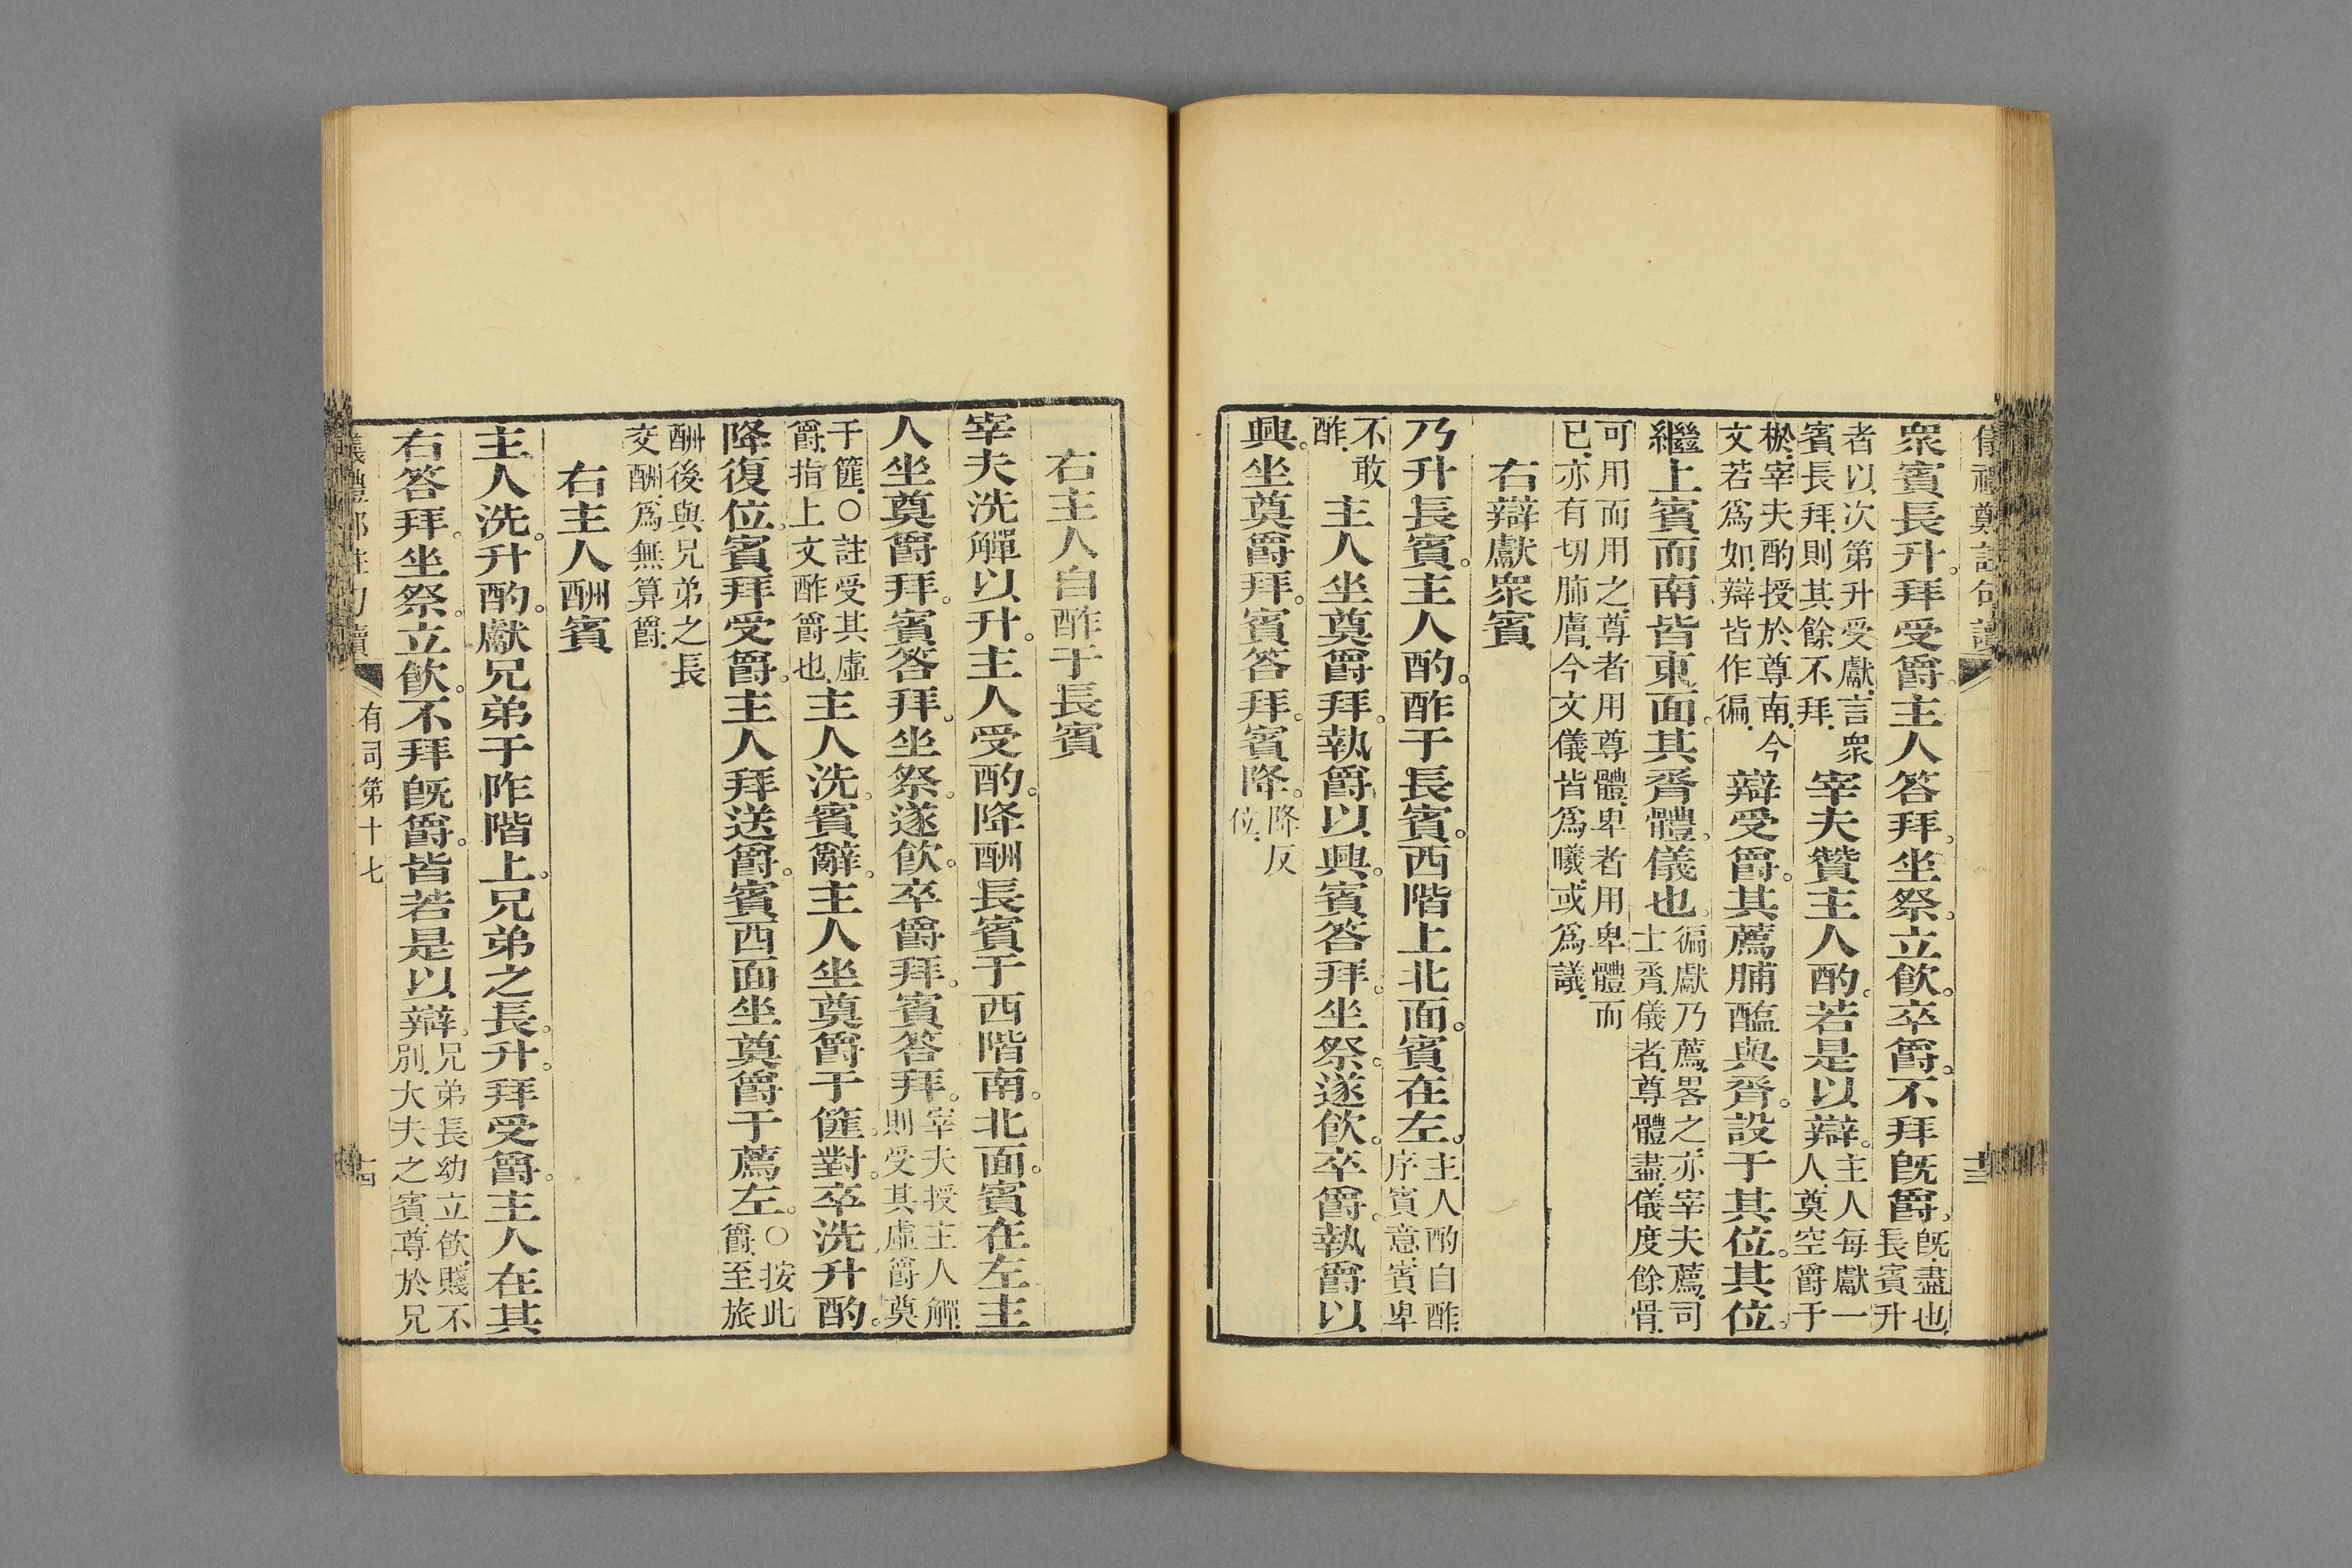 衆賓長升。拜受爵。主人答拜。坐祭。立飲。卒爵。不拜旣爵。旣盡也.長賓升
者以次第升受獻.言衆賓長拜.則其餘不拜.宰夫贊主人酌。若是以辯。主人每獻一人.奠空爵于
棜.宰夫酌授於尊南.今文若爲如.辯皆作徧.辯受爵。其薦脯醢與脀。設于其位。其位
繼上賓而南皆東面。其脀體。儀也。徧獻乃薦.畧之.亦宰夫薦.司士脀.儀者.尊體盡.儀度餘骨.
可用而用之.尊者用尊體.卑者用卑體而已.亦有切肺膚.今文儀皆爲曦.或爲議.
右辯獻衆賓
乃升長賓。主人酌。酢于長賓。西階上北面。賓在左。主人酌自酢.序賓意.賓卑
不敢酢.主人坐奠爵拜。執爵以興。賓答拜。坐祭。遂飲。卒爵。執爵以
興。坐奠爵拜。賓答拜。賓降。降反位.
右主人自酢于長賓
宰夫洗觶以升。主人受酌。降酬長賓于西階南。北面。賓在左。主
人坐奠爵拜。賓答拜。坐祭。遂飲。卒爵。拜。賓答拜。宰夫授主人觶.則受其虛爵奠
于篚.○註受其虛爵.指上文酢爵也.主人洗。賓辭。主人坐奠爵于篚。對。卒洗。升酌。
降復位。賓拜受爵。主人拜送爵。賓西面坐奠爵于薦左。○按此爵.至旅
酬後與兄弟之長交酬.爲無算爵.
右主人酬賓
主人洗。升酌。獻兄弟于阼階上。兄弟之長。升。拜受爵。主人在其
右答拜。坐祭。立飲。不拜旣爵。皆若是以辯。兄弟長幼立飲.賤不別.大夫之賓.尊於兄
有司第十七